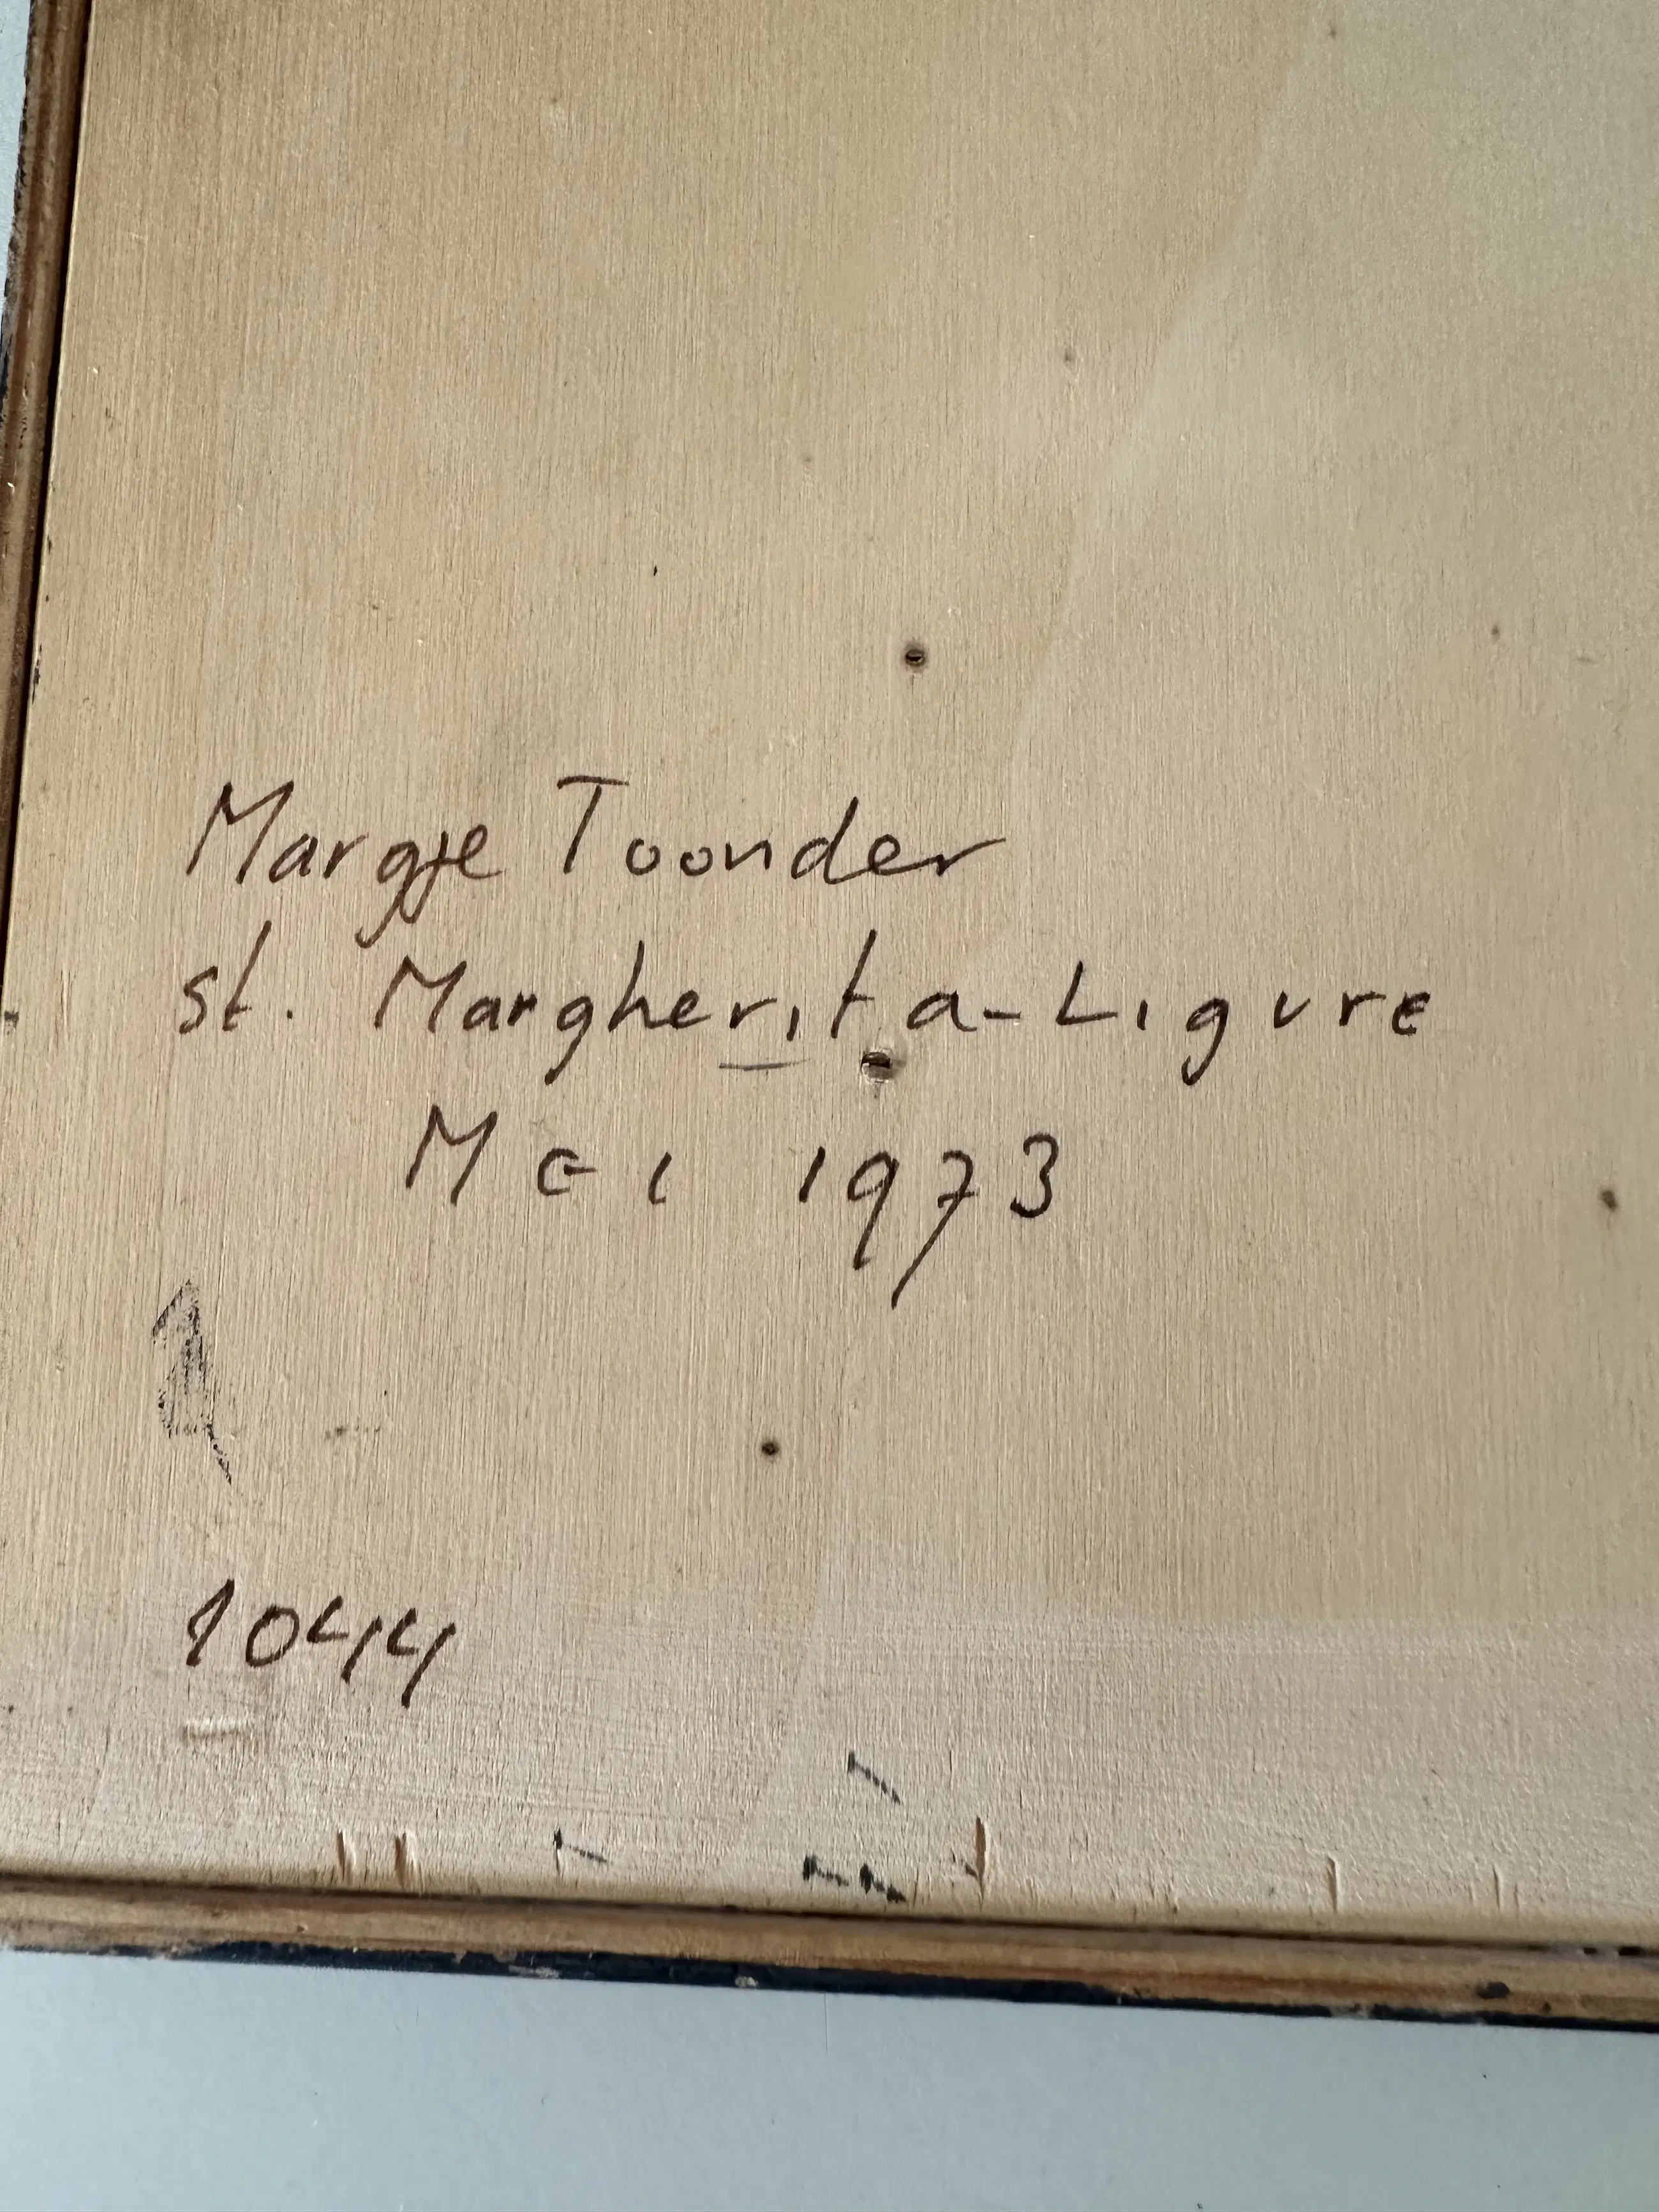 Margje Toonder
st. Margherita-Ligure
Mei 1973
1044